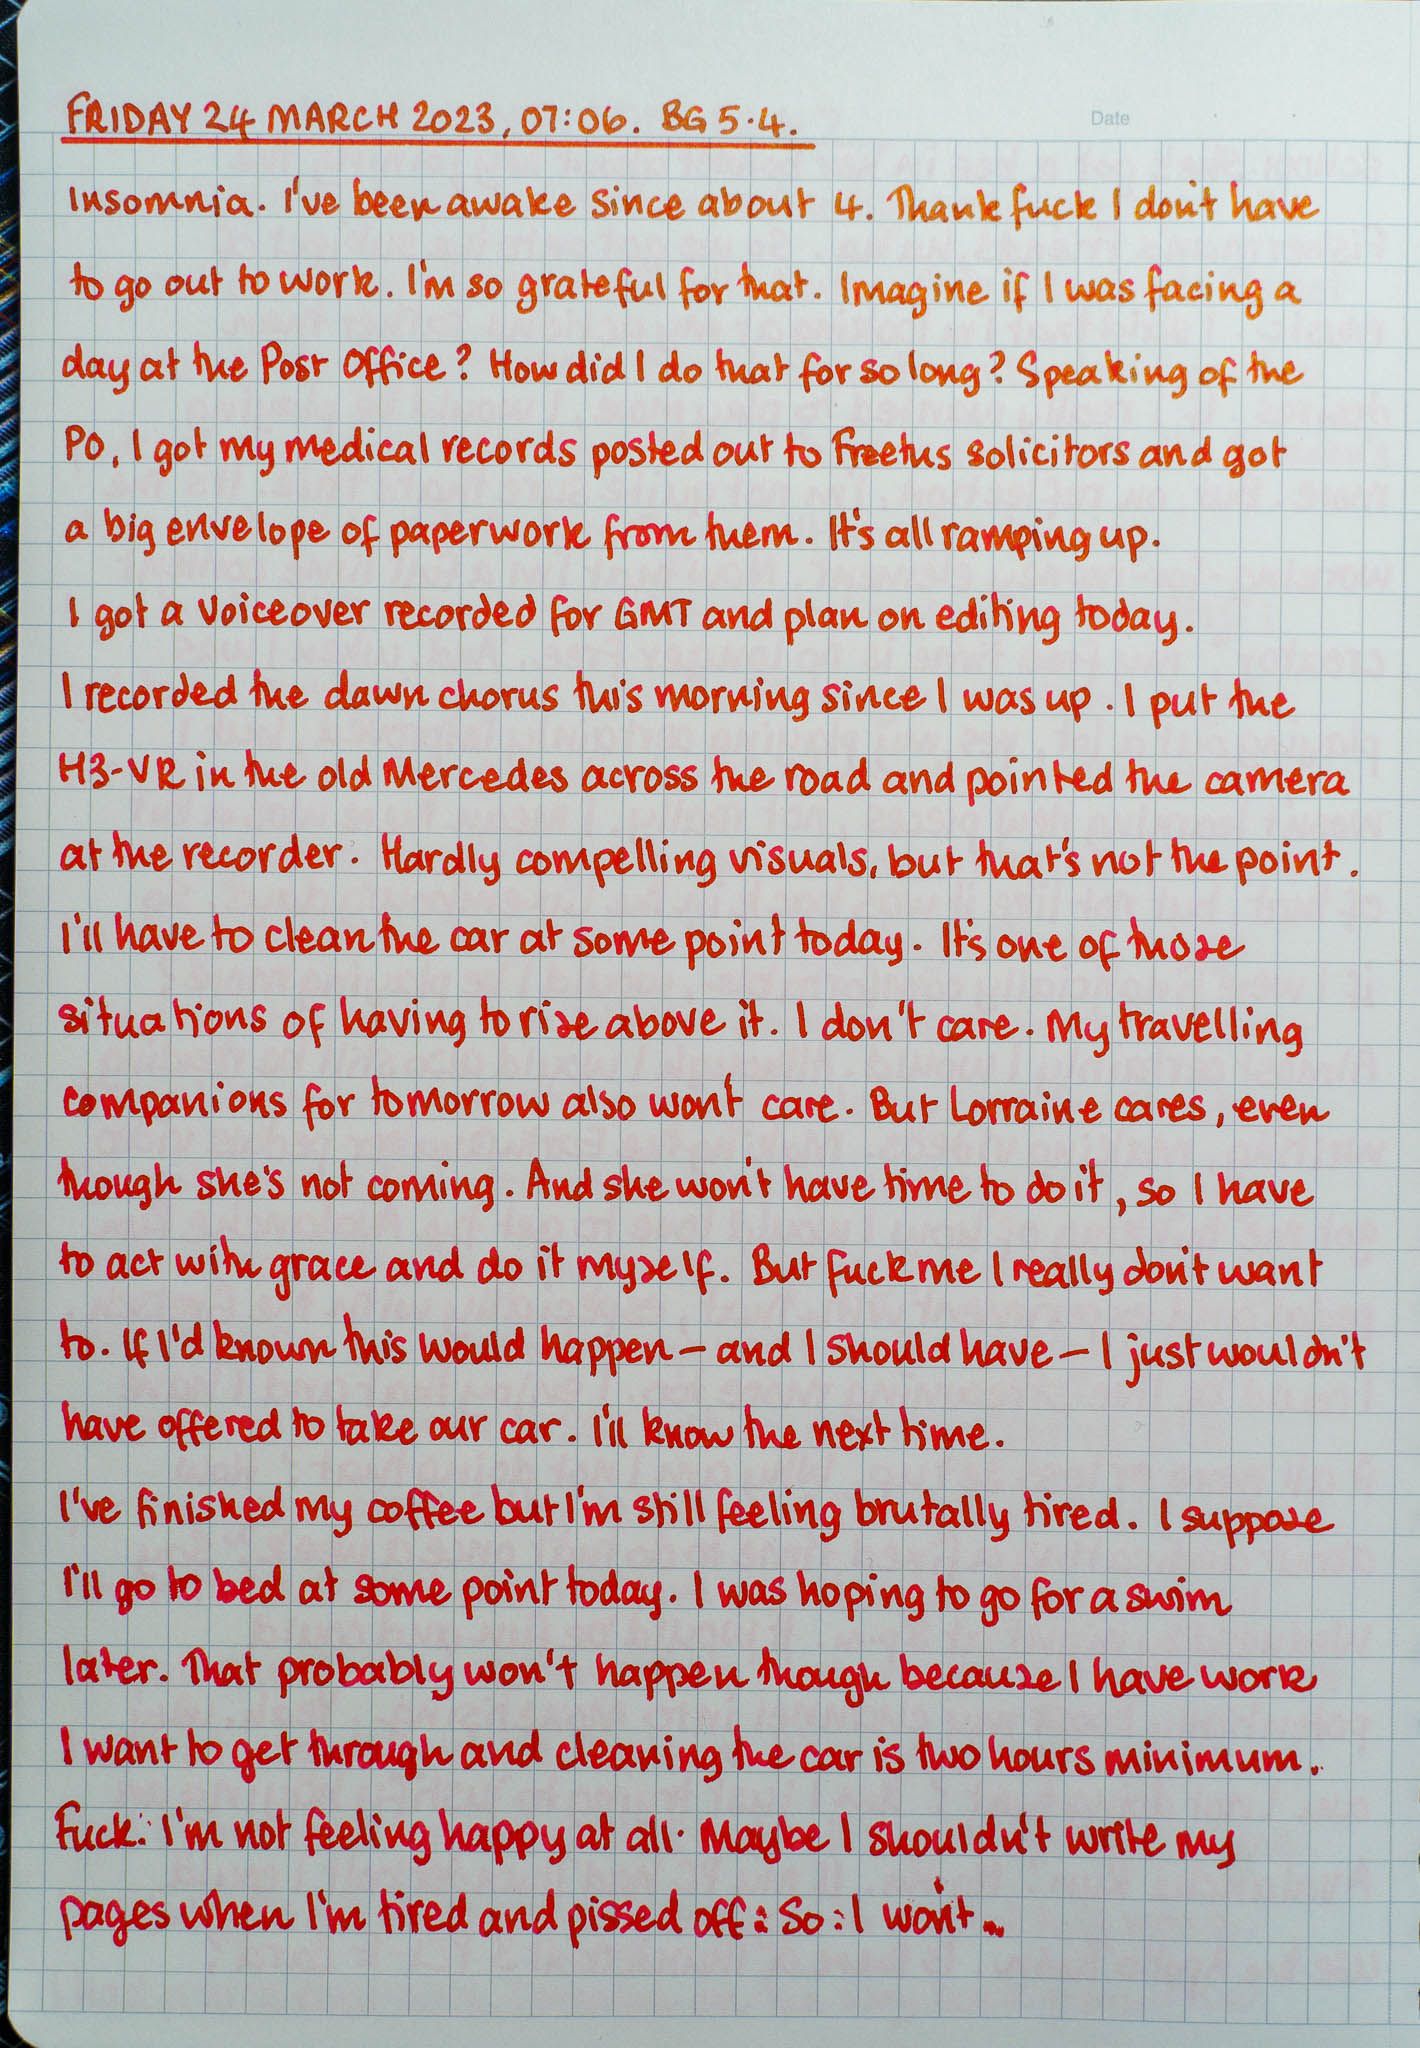 Date
FRIDAY 24 MARCH 2023, 07:06. BG 5.4.
Insomnia. I've been awake since about 4. Thank fuck I don't have
to go out to work. I'm so grateful for that. Imagine if I was facing a
day at the Post Office? How did I do that for so long? Speaking of the
PO, I got my medical records posted out to Freetus solicitors and got
a big envelope of paperwork from them. It's all ramping up.
I got a voiceover recorded for GMT and plan on editing today.
I recorded the dawn chorus this morning since I was up. I put the
H3-VR in the old Mercedes across the road and pointed the camera
at the recorder. Hardly compelling visuals, but that's not the point.
I'll have to clean the car at some point today. It's one of those
situations of having to rise above it. I don't care. My travelling
companions for tomorrow also won't care. But Lorraine cares, even
though she's not coming. And she won't have time to do it, so I have
to act with grace and do it myself. But fuck me I really don't want
to. If I'd known this would happen – and I should have – I just wouldn't
have offered to take our car. I'll know the next time.
I've finished my coffee but I'm still feeling brutally tired. I suppose
I'll go to bed at some point today. I was hoping to go for a swim
later. That probably won't happen though because I have work
I want to get through and cleaning the car is two hours minimum.
Fuck. I'm not feeling happy at all. Maybe I shouldn't write my
pages when I'm tired and pissed off. So I won't...